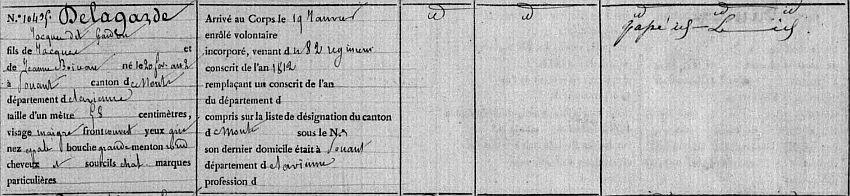 N.º 10495. Delagarde
Jacques dit Gardon
fils de Jacques et
de Jeanne Boivau né le 20 for. an 2
à Jouant canton d e Monts
département d e la vienne
taille d'un mètre 58 centimètres,
visage maigre front couvert yeux gris
nez épat bouche grande menton rond
cheveux et sourcils chat. marques
particulières
Arrivé au Corps le 19 Janvier
enrôlé volontaire
incorporé, venant d u 82 regiment
conscrit de l'an 1812
remplaçant un conscrit de l'an
du département d
compris sur la liste de désignation du canton
d e Monts sous le N.º
son dernier domicile était à Jouant
département d e la vienne
profession d
id
id
id id id
papé